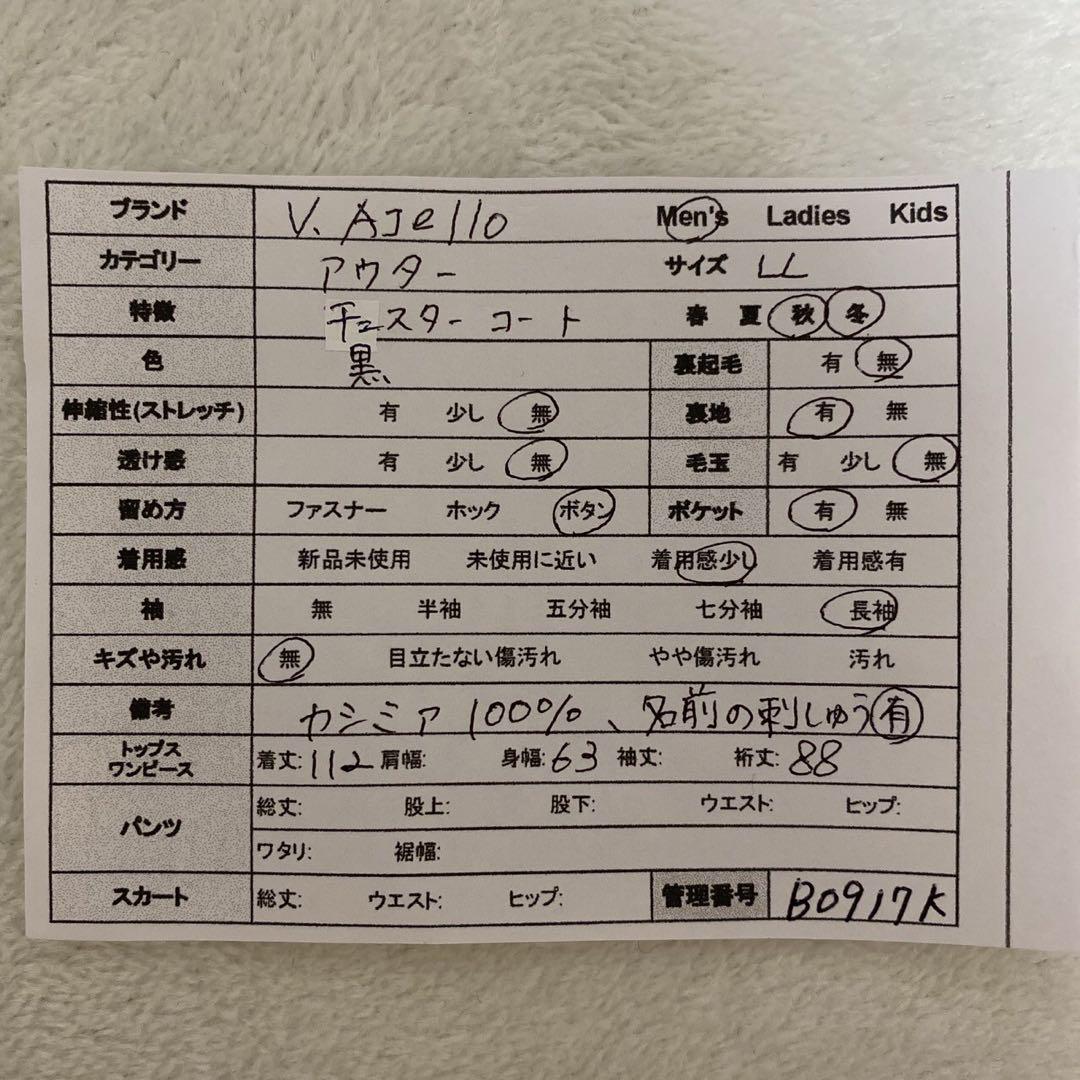 ブランド V. AJello Men's Ladies Kids
カテゴリー アウター サイズ LL
特徴 チェスターコート 春 夏 秋 冬
色 黒 裏起毛 有 無
伸縮性(ストレッチ) 有 少し 無 裏地 有 無
透け感 有 少し 無 毛玉 有 少し 無
留め方 ファスナー ホック ボタン ポケット 有 無
着用感 新品未使用 未使用に近い 着用感少し 着用感有
袖 無 半袖 五分袖 七分袖 長袖
キズや汚れ 無 目立たない傷汚れ やや傷汚れ 汚れ
備考 カシミア 100%、名前の刺しゅう有
トップス
ワンピース 着丈:112 肩幅: 身幅:63 袖丈: 裄丈:88
パンツ 総丈: 股上: 股下: ウエスト: ヒップ:
ワタリ: 裾幅:
スカート 総丈: ウエスト: ヒップ: 管理番号 B0917K